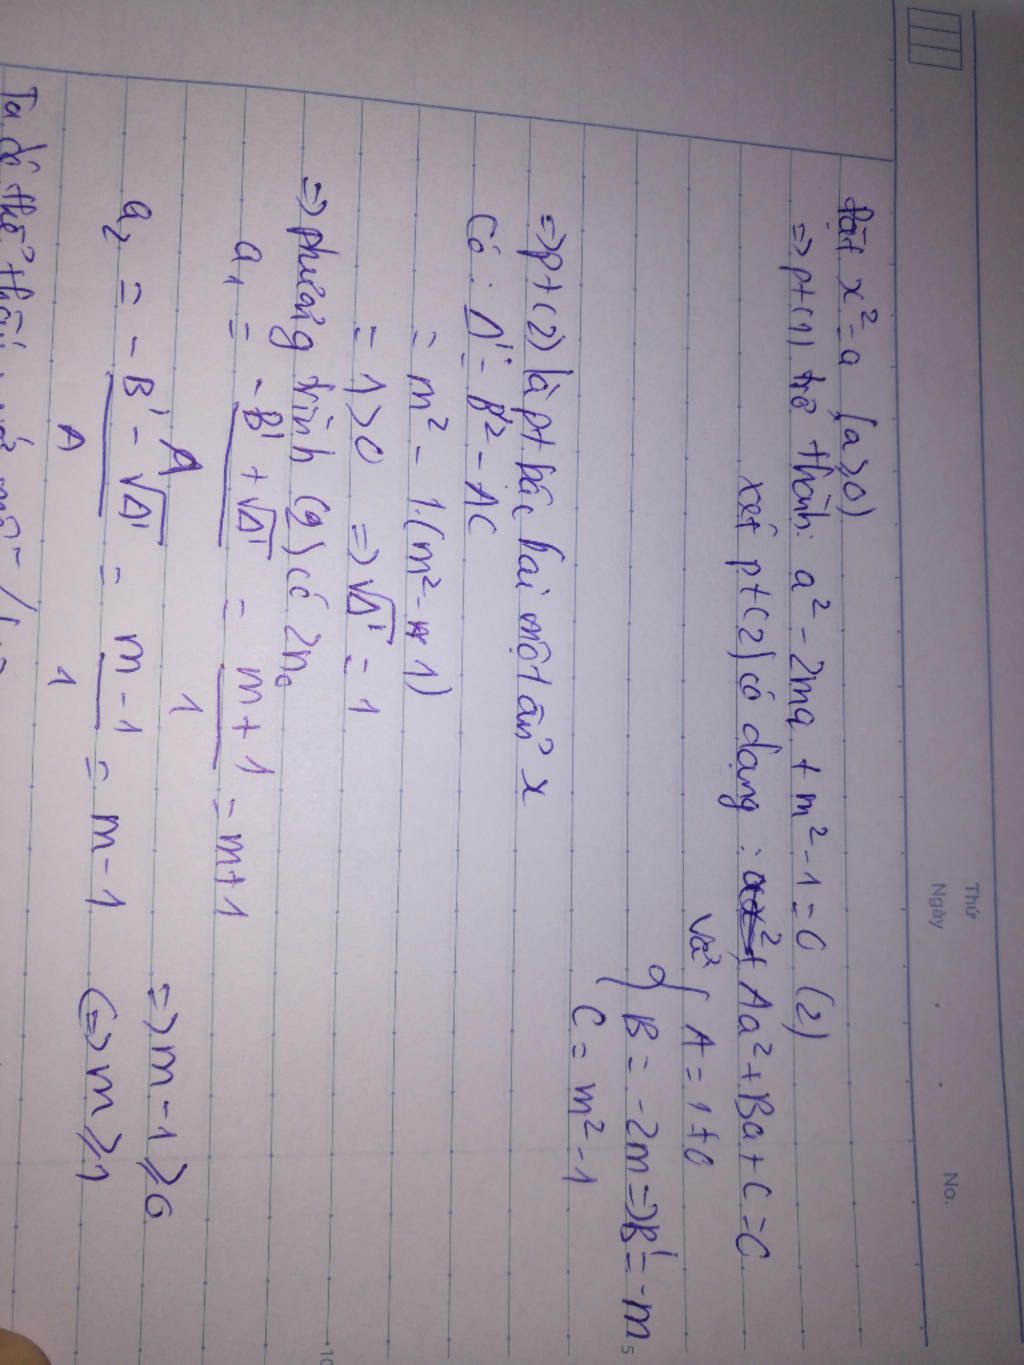 Thứ
Ngày
No.
Đặt x² = a (a ≥ 0)
=> pt(1) trở thành: a² - 2ma + m² - 1 = 0 (2)
xét pt(2) có dạng: Aa² + Ba + C = 0
Và { A = 1 ≠ 0
B = -2m => B' = -m
C = m² - 1
5
=> pt(2) là pt bậc hai một ẩn x
Có: Δ' = B'² - AC
= m² - 1.(m² - 1)
= 1 > 0 => √Δ' = 1
10
=> phương trình (2) có 2 n0
a₁ = -B' + √Δ' = m + 1 = m + 1
A 1
=> m - 1 ≥ 0
a₂ = -B' - √Δ' = m - 1 = m - 1
A 1
<=> m ≥ 1
Ta để thấy